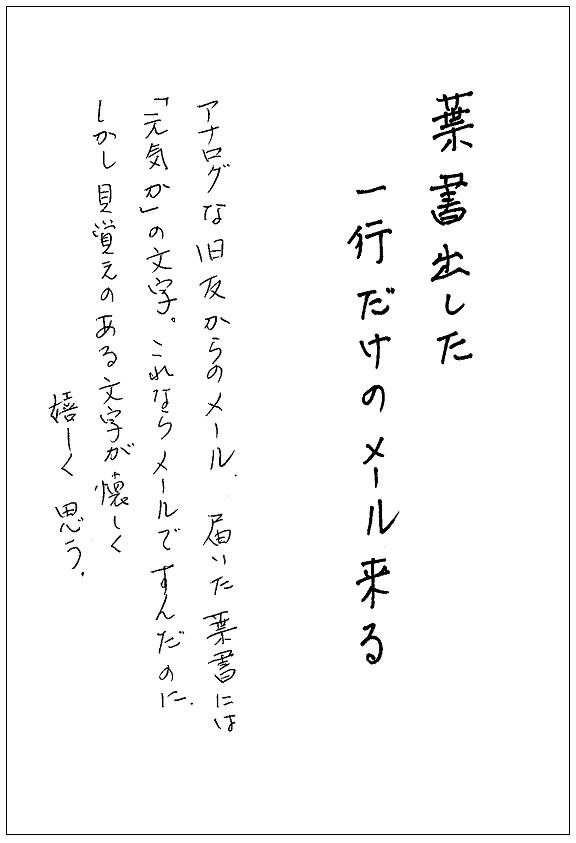 葉書出した
一行だけのメール来る
アナログな旧友からのメール．届いた葉書には
「元気か」の文字。これならメールですんだのに．
しかし見覚えのある文字が懐しく
嬉しく思う．